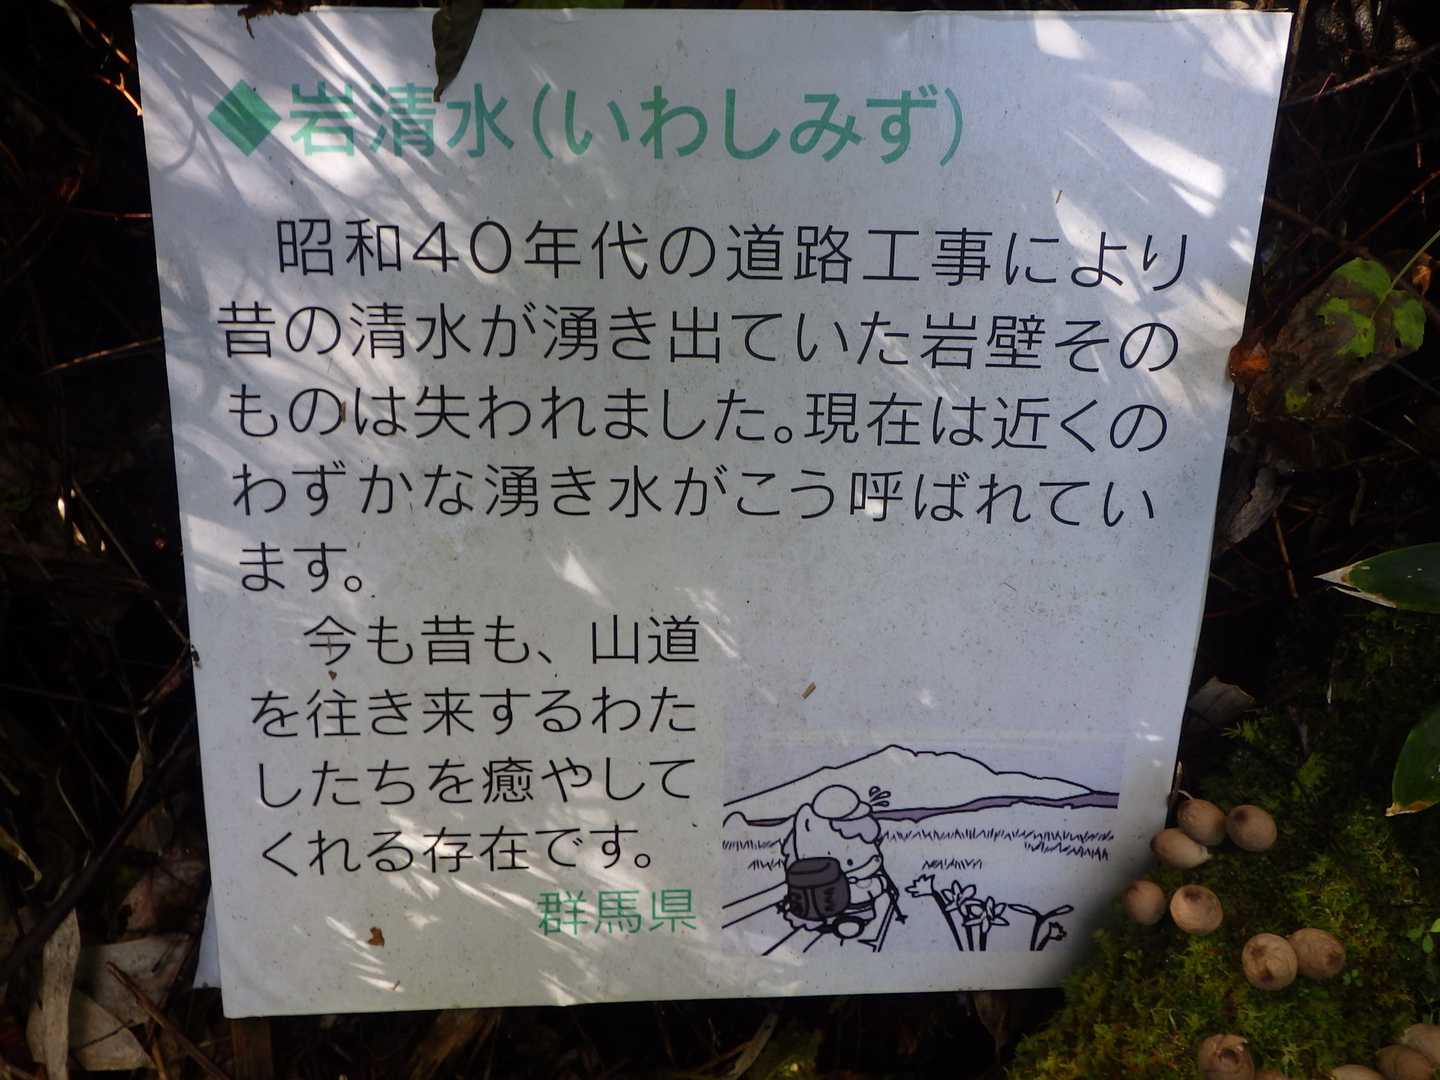 ◆岩清水(いわしみず)
昭和40年代の道路工事により
昔の清水が湧き出ていた岩壁その
ものは失われました。現在は近くの
わずかな湧き水がこう呼ばれてい
ます。
今も昔も、山道
を往き来するわた
したちを癒やして
くれる存在です。
群馬県